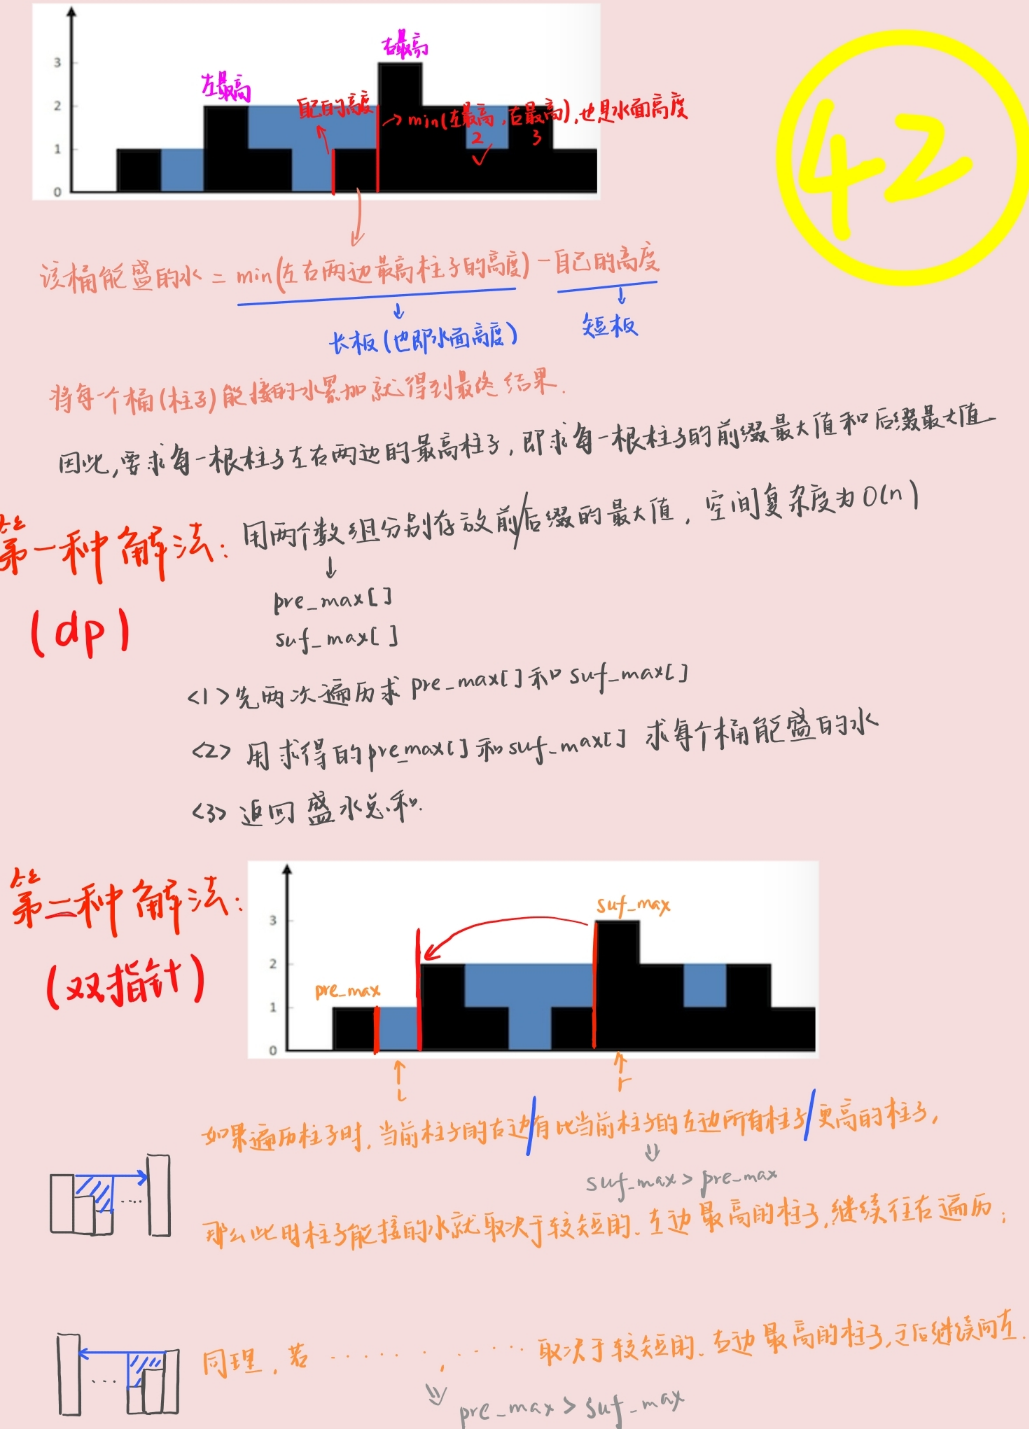 3
2
1
0
左最高
右最高
自己的高度
min(左最高,右最高),也是水面高度
2
3
42
该桶能盛的水 = min(左右两边最高柱子的高度) - 自己的高度
长板(也即水面高度)
短板
将每一个桶(柱子)能接的水累加就得到最终结果.
因此,要求每一根柱子左右两边的最高柱子,即求每一根柱子的前缀最大值和后缀最大值
第一种解法:
(dp)
用两个数组分别存放前/后缀的最大值,空间复杂度为O(n)
pre_max[]
suf_max[]
<1>先两次遍历求 pre_max[]和 suf_max[]
<2> 用求得的pre_max[]和suf_max[] 求每个桶能盛的水
<3> 返回盛水总和.
第二种解法:
(双指针)
3
2
1
0
pre_max
suf_max
l
r
如果遍历柱子时,当前柱子的右边/有比当前柱子的左边所有柱子/更高的柱子,
suf_max > pre_max
....
那么此时柱子能接的水就取决于较短的、左边最高的柱子,继续往右遍历;
同理,若 ······,······ 取决于较短的、右边最高的柱子,之后继续向左.
...
pre_max > suf_max